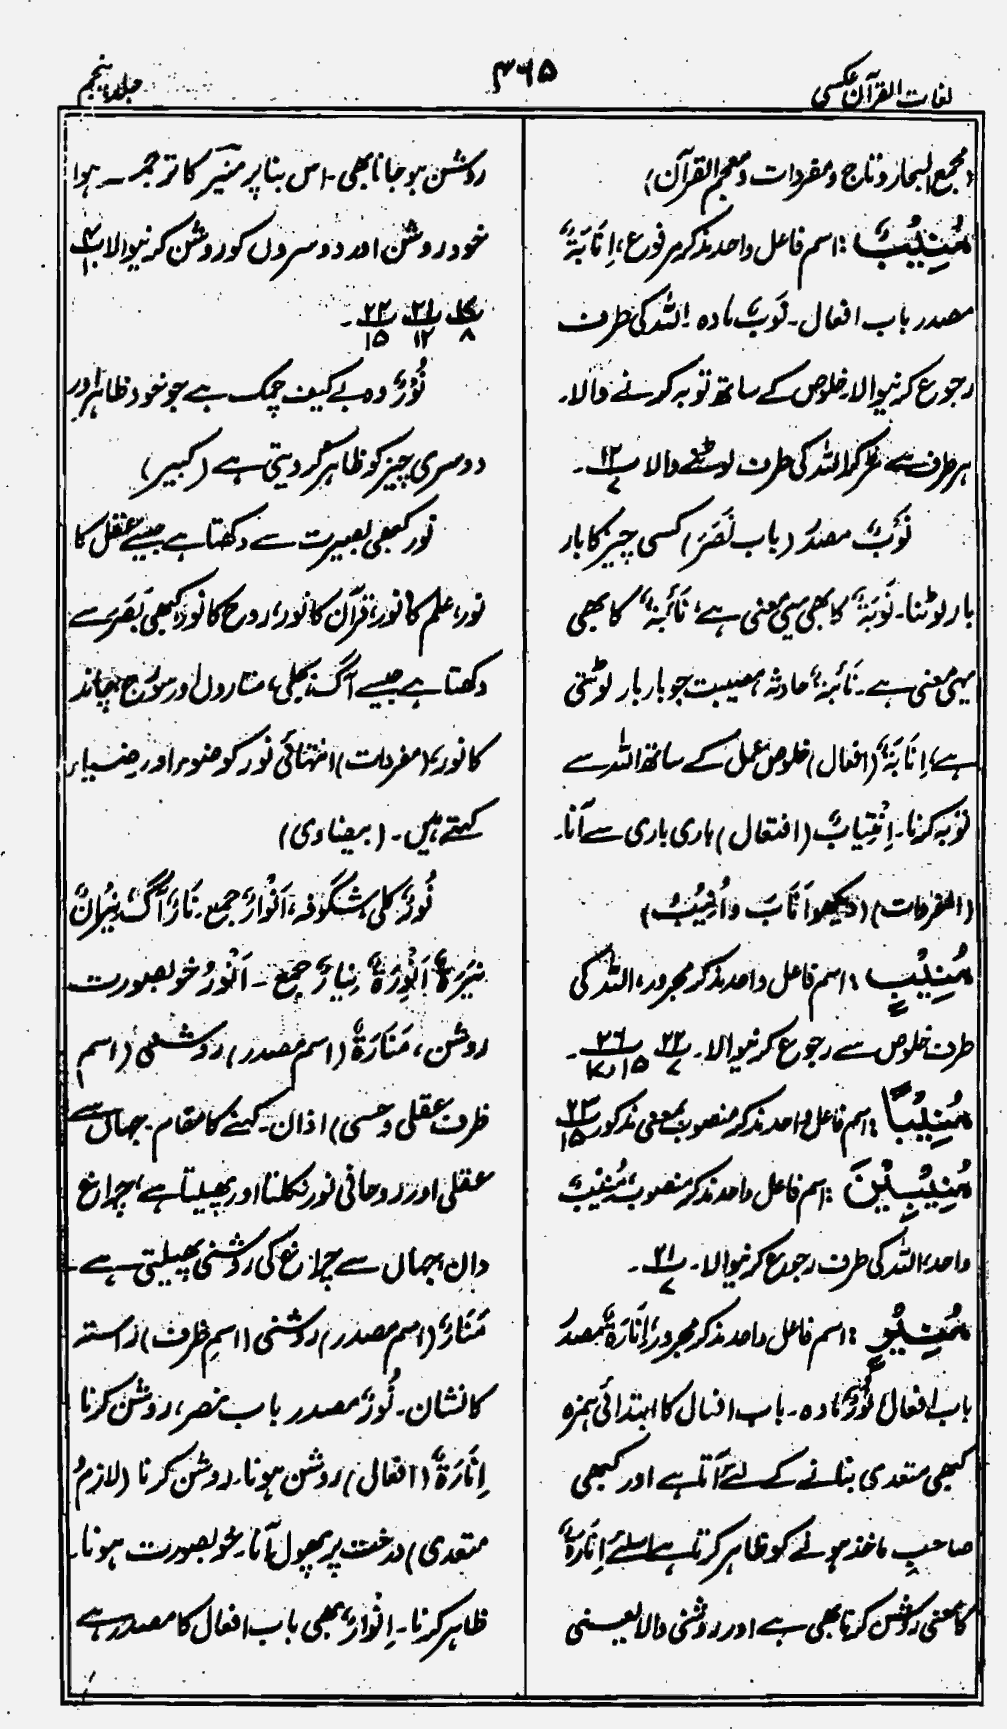 لغات القرآن عکسی
۳۶۵
جلد پنجم
(مجمع البحار و تاج و مفردات و معجم القرآن)
مُنِیْبٌ : اسم فاعل واحد مذکر مرفوع، اِنَابَۃٌ
مصدر باب افعال۔ نَوْبٌ مادہ۔ اللہ کی طرف
رجوع کرنیوالا۔ خلوص کے ساتھ توبہ کرنے والا۔
ہر طرف سے کٹ کر اللہ کی طرف لوٹنے والا پ۱۲/۷۔
نَوْبٌ مصدر (باب نَصَرَ) کسی چیز کا بار
بار لوٹنا۔ نَوْبَۃٌ کا بھی یہی معنی ہے، نَائِبَۃٌ کا بھی
یہی معنی ہے۔ نَائِبَۃٌ، حادثہ، مصیبت جو بار بار لوٹتی
ہے، اِنَابَۃٌ (افعال) خلوص عمل کے ساتھ اللہ سے
توبہ کرنا۔ اِنْتِیَابٌ (افتعال) باری باری سے آنا۔
(المفردات) (دیکھو اَنَابَ و اُنِیْبُ)
مُنِیْبٍ : اسم فاعل واحد مذکر مجرور، اللہ کی
طرف خلوص سے رجوع کرنیوالا۔ پ۲۲/۷ پ۲۶/۱۵ و۱۷۔
مُنِیْبًا : اسم فاعل واحد مذکر منصوب بمعنی مذکور پ۲۳/۱۵
مُنِیْبِیْنَ : اسم فاعل واحد مذکر منصوب، مُنِیْبٌ
واحد، اللہ کی طرف رجوع کرنیوالا۔ پ۲۱/۷۔
مُنِیْرٍ : اسم فاعل واحد مذکر مجرور، اِنَارَۃٌ مصدر
باب افعال نُوْرٌ مادہ۔ باب افعال کا ابتدائی ہمزہ
کبھی متعدی بنانے کے لئے آتا ہے اور کبھی
صاحبِ ماخذ ہونے کو ظاہر کرتا ہے اسلئے اِنَارَۃٌ
کا معنی روشن کرنا بھی ہے اور روشنی والا یعنی
روشن ہو جانا بھی۔ اس بنا پر منیر کا ترجمہ ہوا
خود روشن اور دوسروں کو روشن کرنیوالا پ۴/۱۰
پ۱۷/۸ پ۲۱/۱۲ پ۲۲/۱۵۔
نُوْرٌ وہ بے کیف چمک ہے جو خود ظاہر اور
دوسری چیز کو ظاہر کر دیتی ہے (کبیر)
نور کبھی بصیرت سے دکھتا ہے جیسے عقل کا
نور، علم کا نور، قرآن کا نور، روح کا نور، کبھی بَصَر سے
دکھتا ہے جیسے آگ، بجلی، ستاروں اور سورج، چاند
کا نور، (مفردات) انتہائی نور کو ضوء اور ضیاء
کہتے ہیں۔ (بیضاوی)
نُوْرٌ کلی، شگوفہ، اَنْوَارٌ جمع۔ نَارٌ آگ، نِیْرَانٌ
نِیَرَۃٌ اَنْوِرَۃٌ نِیَارٌ جمع۔ اَنْوَرُ خوبصورت
روشن، مَنَارَۃٌ (اسم مصدر) روشنی (اسم
ظرف عقلی و حسی) اذان کہنے کا مقام۔ جہاں سے
عقلی اور روحانی نور نکلتا اور پھیلتا ہے، چراغ
دان، جہاں سے چراغ کی روشنی پھیلتی ہے۔
مَنَارٌ (اسم مصدر) روشنی (اسمِ ظرف) راستہ
کا نشان۔ نُوْرٌ مصدر باب نصر، روشن کرنا
اِنَارَۃٌ (افعال) روشن ہونا۔ روشن کرنا (لازم و
متعدی) درخت پر پھول آنا۔ خوبصورت ہونا۔
ظاہر کرنا۔ اِنْوَارٌ بھی باب افعال کا مصدر ہے